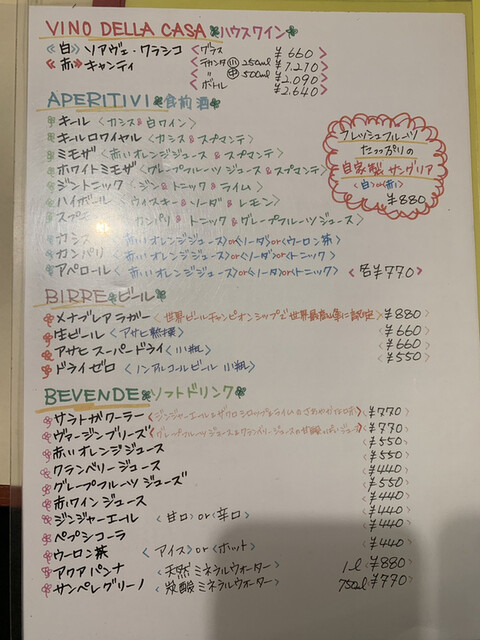 VINO DELLA CASA ハウスワイン
《白》 ソアヴェ・クラシコ 〈 グラス ¥660 〉
《赤》 キャンティ 〈 デカンタ 小 250ml ¥1.270 〉
〈 〃 中 500ml ¥2.090 〉
〈 ボトル ¥2.640 〉
APERITIVI 食前酒
キール 〈カシス&白ワイン〉
キールロワイヤル 〈カシス&スプマンテ〉
ミモザ 〈赤いオレンジジュース&スプマンテ〉
ホワイトミモザ 〈グレープフルーツジュース&スプマンテ〉
ジントニック 〈ジン&トニック&ライム〉
ハイボール 〈ウイスキー&ソーダ&レモン〉
スプモーニ 〈カンパリ&トニック&グレープフルーツジュース〉
カシス 〈赤いオレンジジュース〉or〈ソーダ〉or〈ウーロン茶〉
カンパリ 〈赤いオレンジジュース〉or〈ソーダ〉or〈トニック〉
アペロール 〈赤いオレンジジュース〉or〈ソーダ〉or〈トニック〉 〈各¥770〉
フレッシュフルーツ
たっっぷりの
自家製サングリア
〈白〉or〈赤〉
¥880
BIRRE ビール
メナブレア ラガー 〈世界ビールチャンピオンシップで世界最高賞に認定〉 ¥880
生ビール 〈アサヒ熟撰〉 ¥660
アサヒスーパードライ 〈小瓶〉 ¥660
ドライゼロ 〈ノンアルコールビール 小瓶〉 ¥550
BEVENDE ソフトドリンク
サラトガクーラー 〈ジンジャーエール&ザクロシロップ&ライムの 〉 ¥770
ヴァージンブリーズ 〈グレープフルーツジュース&クランベリージュースの甘酸っぱいジュース〉 ¥770
赤いオレンジジュース ¥550
クランベリージュース ¥440
グレープフルーツジュース ¥550
赤ワインジュース ¥440
ジンジャーエール 〈甘口〉or〈辛口〉 ¥440
ペプシコーラ ¥440
ウーロン茶 〈アイス〉or〈ホット〉 ¥440
アクアパンナ 〈天然ミネラルウォーター 1l ¥880〉
サンペレグリーノ 〈炭酸ミネラルウォーター 750ml ¥770〉